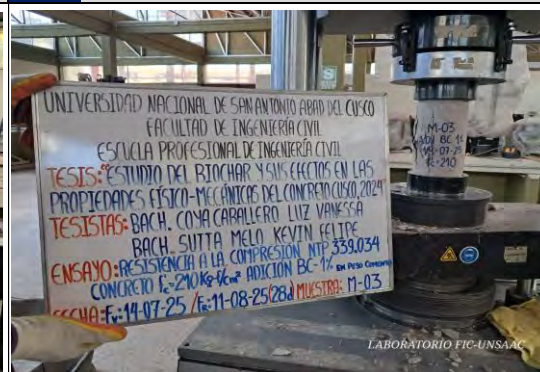 UNIVERSIDAD NACIONAL DE SAN ANTONIO ABAD DEL CUSCO
FACULTAD DE INGENIERÍA CIVIL
ESCUELA PROFESIONAL DE INGENIERÍA CIVIL
TESIS: "ESTUDIO DEL BIOCHAR Y SUS EFECTOS EN LAS
PROPIEDADES FÍSICO-MECÁNICAS DEL CONCRETO CUSCO, 2024"
TESISTAS: BACH. COYA CABALLERO LUZ VANESSA
BACH. SUTTA MELO KEVIN FELIPE
ENSAYO: RESISTENCIA A LA COMPRESIÓN NTP 339.034
CONCRETO f'c=210Kg-f/cm² ADICIÓN BC-1% EN PESO CEMENTO
FECHA: Fv:14-07-25 / FR:11-08-25 (28d) MUESTRA: M-03
M-03
BC 1%
07-25
210
LABORATORIO FIC-UNSAAC